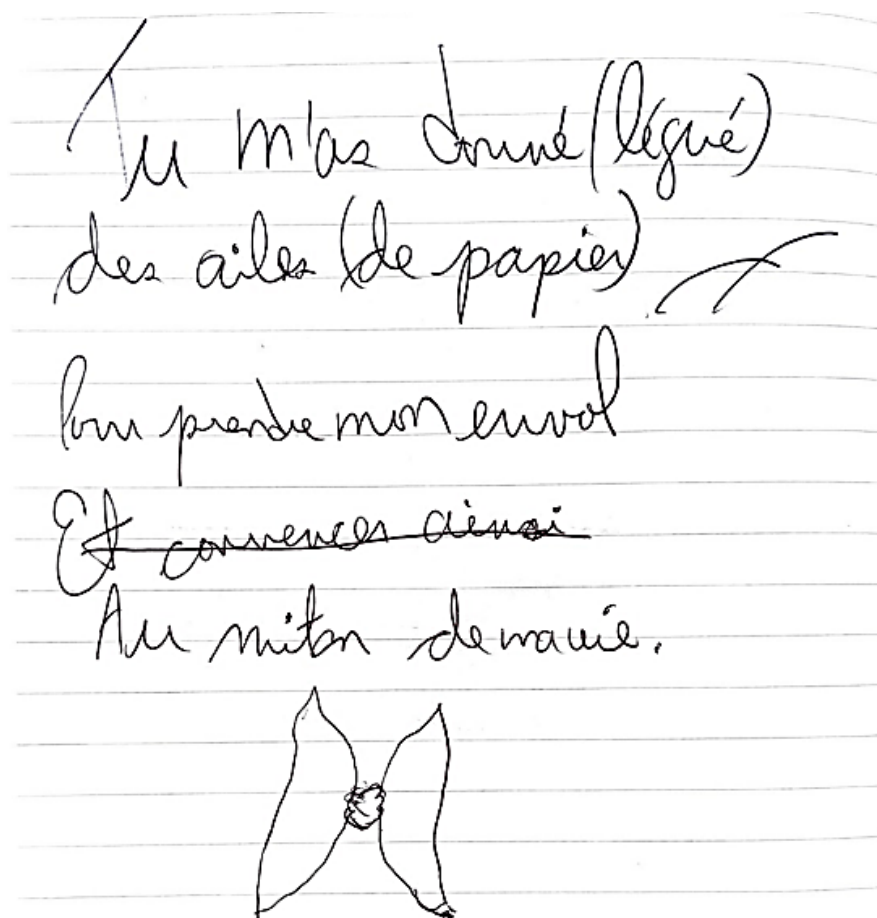 Tu m'as donné (légué)
des ailes (de papier)
Pour prendre mon envol
Et commencer ainsi
Au mitan de ma vie.